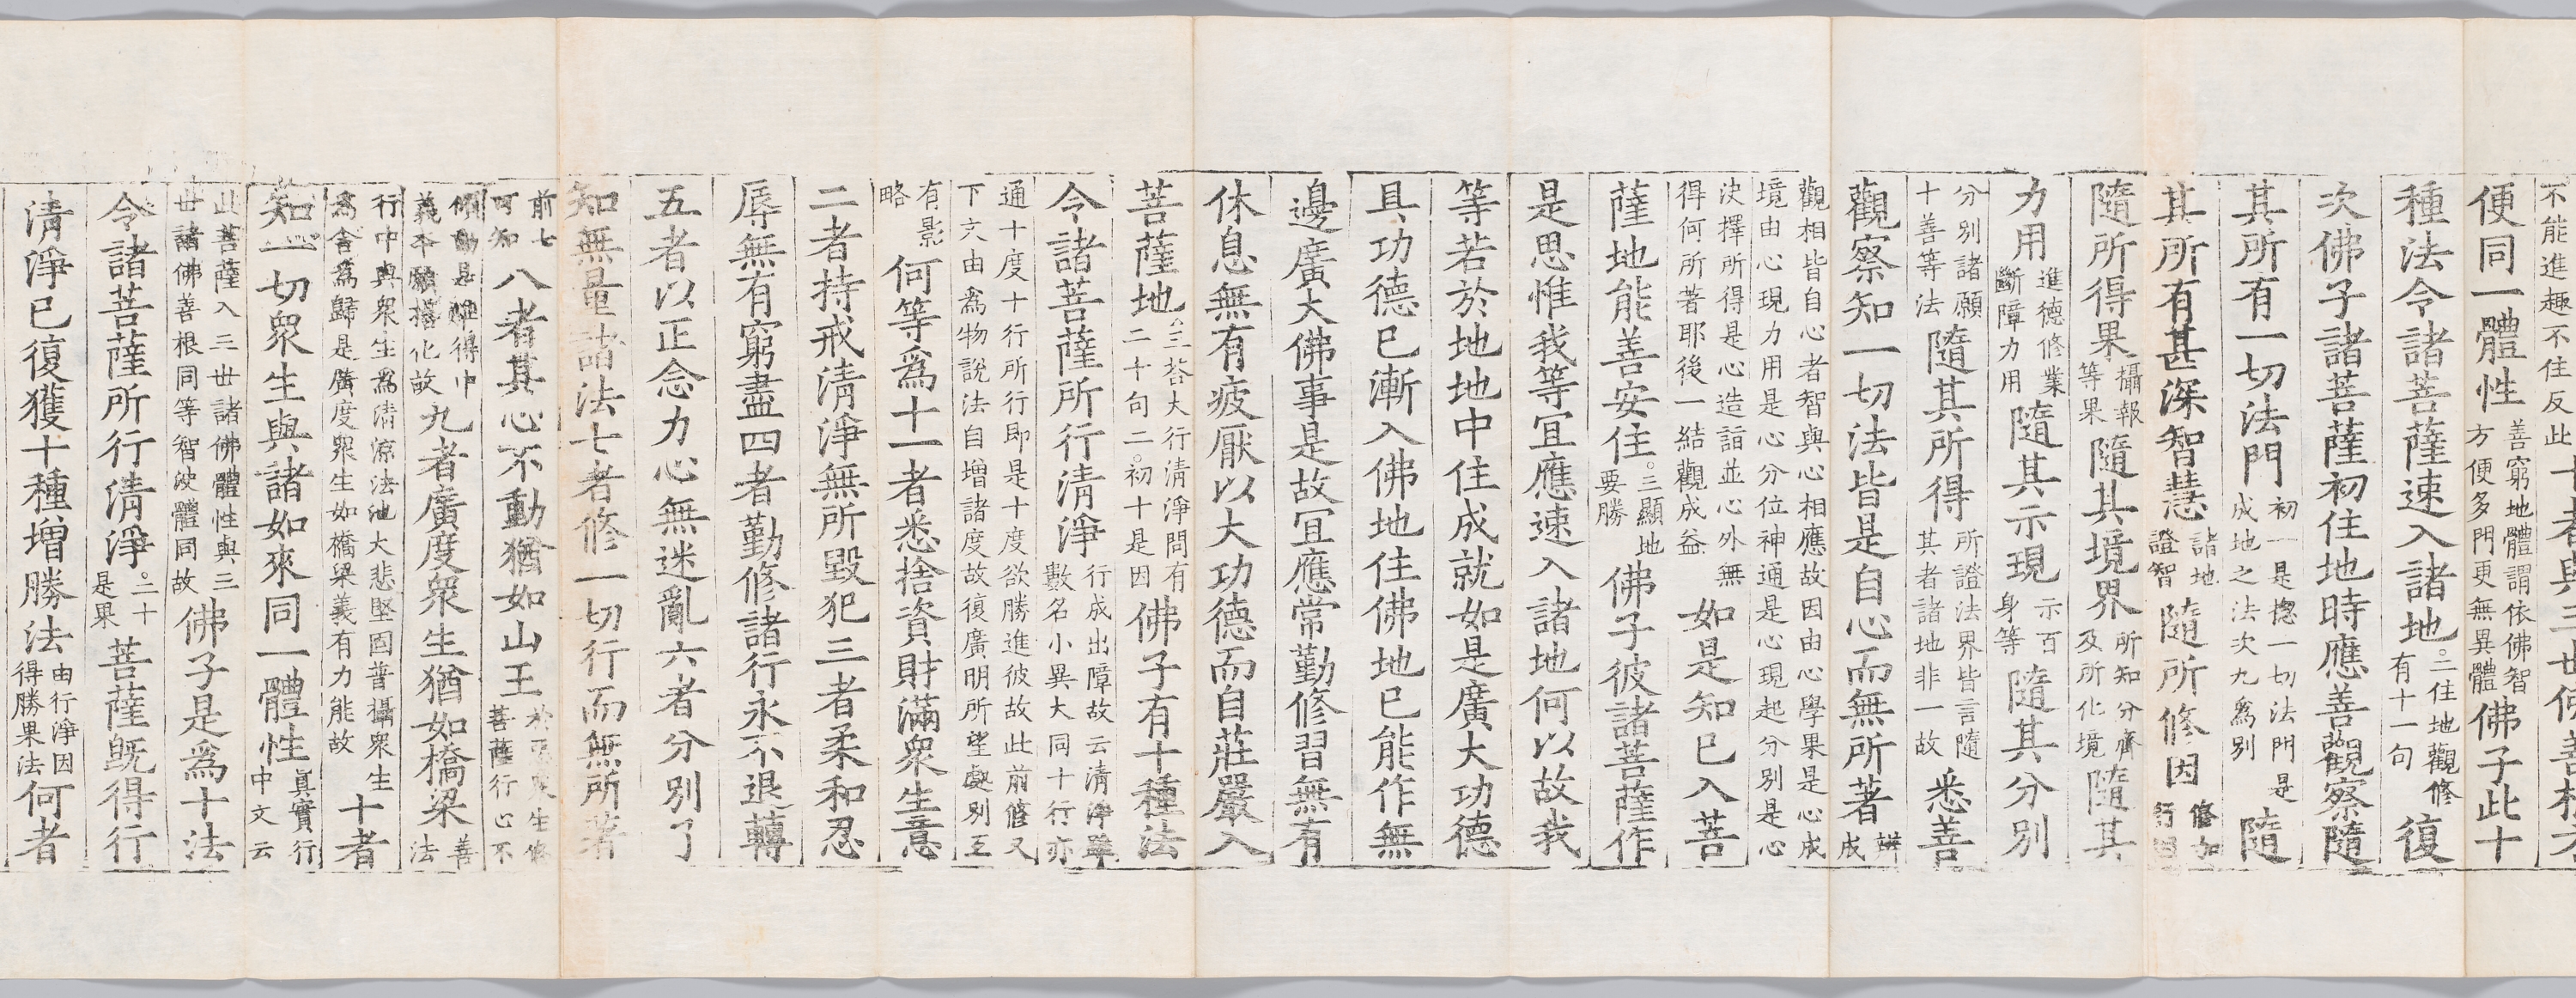 不能進趣不住反此十者與三世佛善根不
便同一體性善窮地體謂依佛智方便多門更無異體佛子此十
種法令諸菩薩速入諸地。二住地觀修有十一句復
次佛子諸菩薩初住地時應善觀察隨
其所有一切法門初一是揔一切法門是成地之法次九爲別隨
其所有甚深智慧諸地證智隨所修因修如
隨所得果攝報等果隨其境界所知分齊及所化境隨其
力用進德修業斷障力用隨其示現示百身等隨其分別
分別諸願十善等法隨其所得所證法界皆言隨其者諸地非一故悉善
觀察知一切法皆是自心而無所著辨成
觀相皆自心者智與心相應故因由心學果是心成境由心現力用是心分位神通是心現起分別是心
決擇所得是心造詣並心外無得何所著耶後一結觀成益如是知已入菩
薩地能善安住。三顯地要勝佛子彼諸菩薩作
是思惟我等宜應速入諸地何以故我
等若於地地中住成就如是廣大功德
具功德已漸入佛地住佛地已能作無
邊廣大佛事是故宜應常勤修習無有
休息無有疲厭以大功德而自莊嚴入
菩薩地三荅大行清淨問有二十句二。初十是因佛子有十種法
令諸菩薩所行清淨行成出障故云清淨數名小異大同十行亦
通十度十行所行即是十度欲勝進彼故此前修又下文由爲物說法自增諸度故復廣明所望處別至
有影略何等爲十一者悉捨資財滿衆生意
二者持戒清淨無所毀犯三者柔和忍
辱無有窮盡四者勤修諸行永不退轉
五者以正念力心無迷亂六者分別了
知無量諸法七者修一切行而無所著
前七可知八者其心不動猶如山王菩薩行心不
傾動是難得中義本願攝化故九者廣度衆生猶如橋梁善法
行中與衆生爲清涼法池大悲堅固普攝衆生爲舍爲歸是廣度衆生如橋梁義有力能故十者
知一切衆生與諸如來同一體性眞實行中文云
此菩薩入三世諸佛體性與三世諸佛善根同等智彼體同故佛子是爲十法
令諸菩薩所行清淨。二十是果菩薩旣得行
清淨已復獲十種增勝法由行淨因得勝果法何者